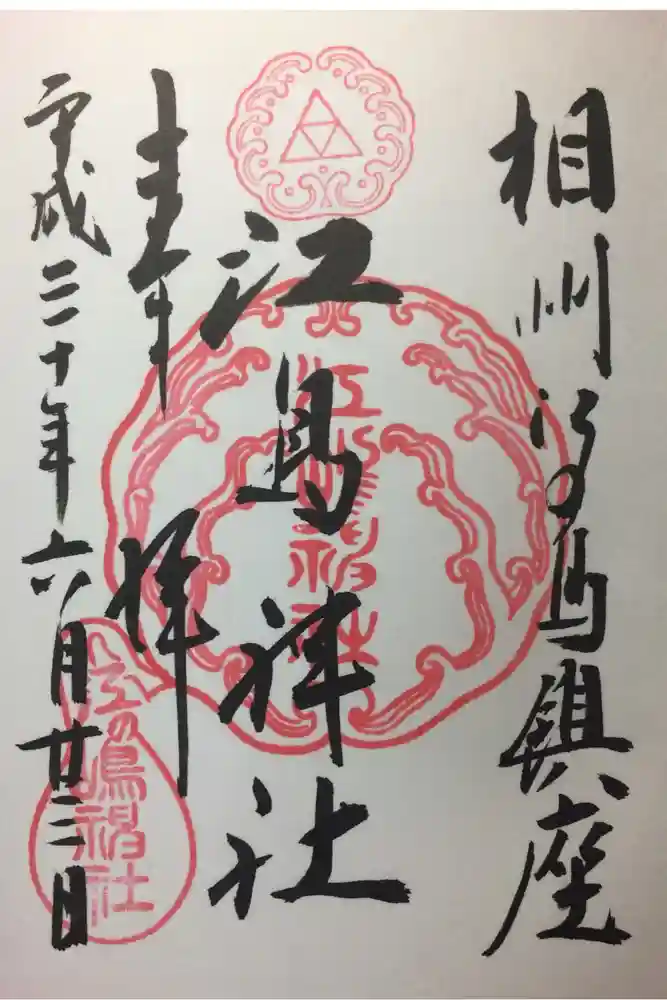 相州江の島鎮座
江島神社
奉拝
平成三十年六月廿三日
江島神社
江の嶋神社